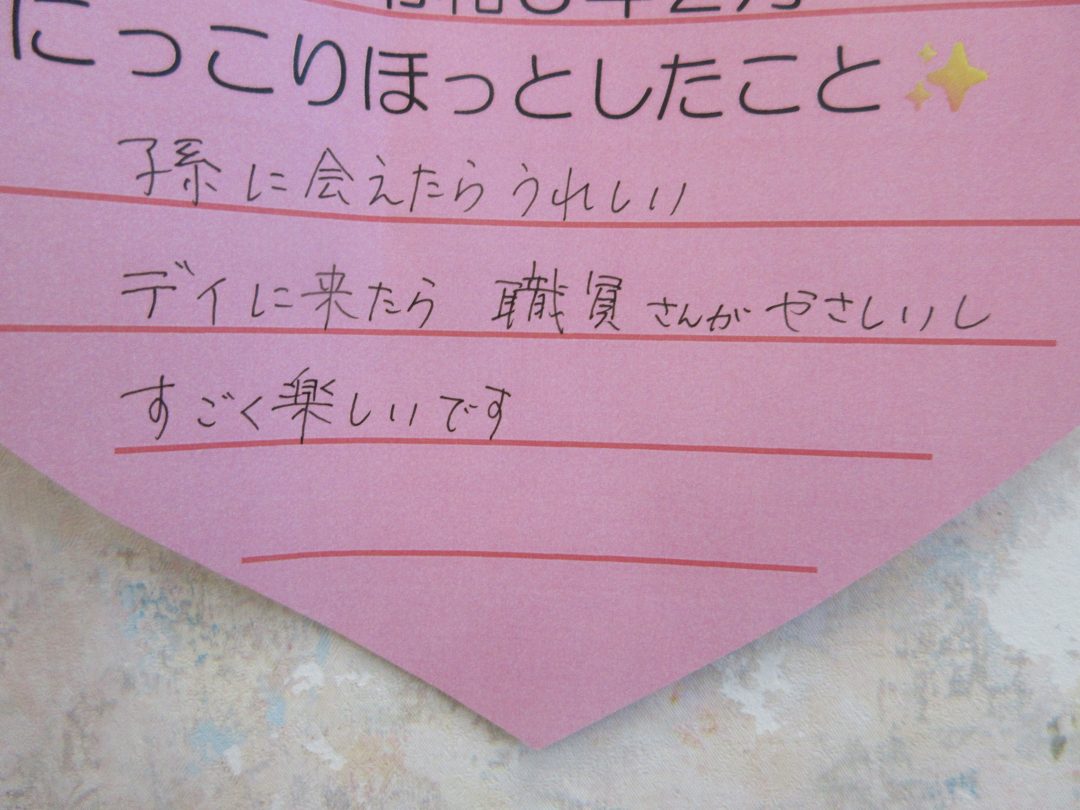 にっこりほっとしたこと
孫に会えたらうれしい
デイに来たら 職員さんがやさしいし
すごく楽しいです